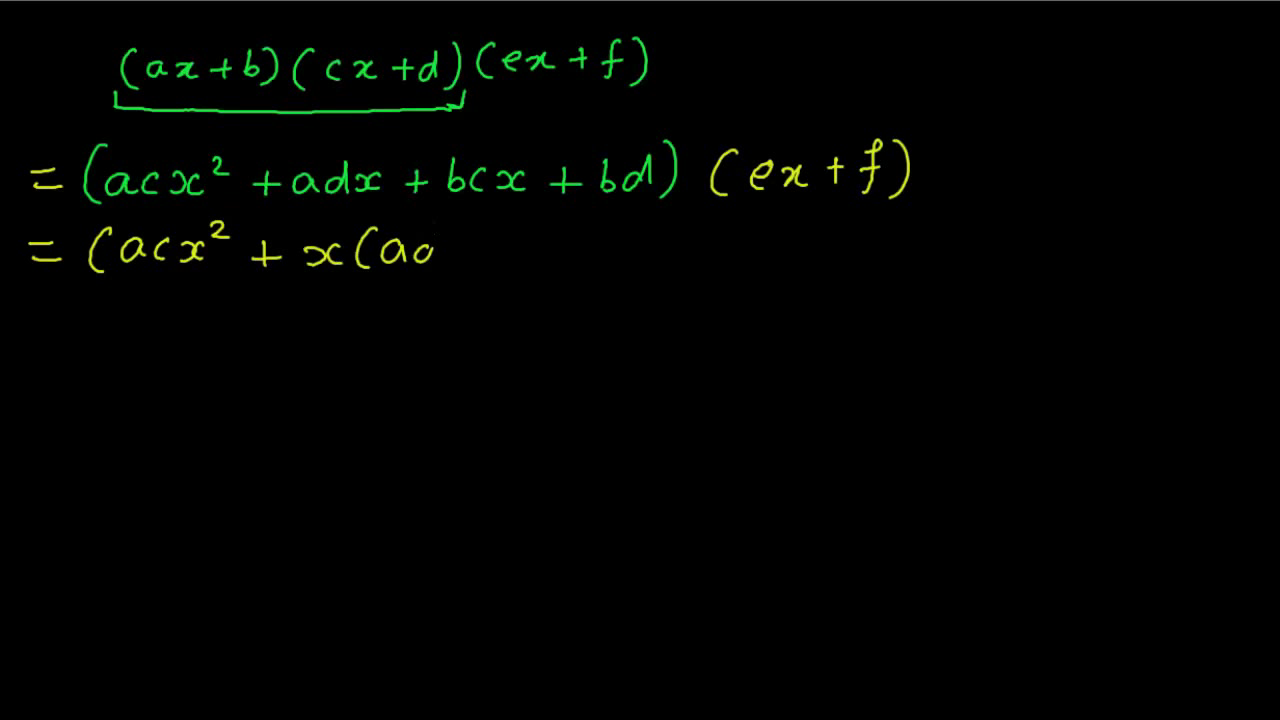 (ax+b)(cx+d)(ex+f)
= (acx² + adx + bcx + bd) (ex+f)
= (acx² + x(ac